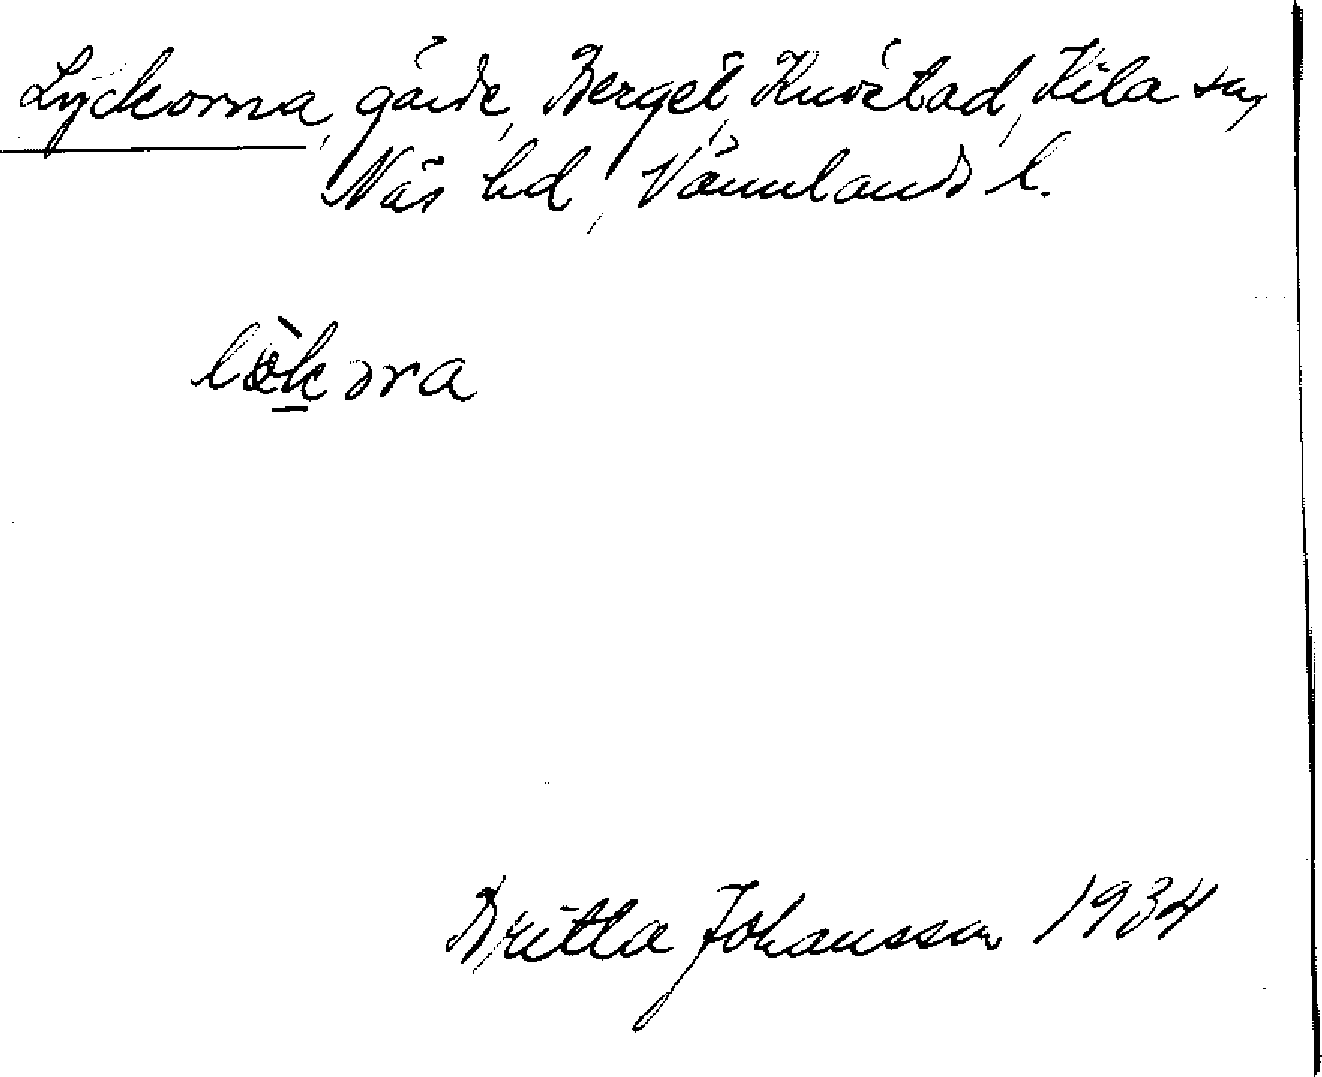 Lyckorna, gärde, Berget, Knöstad, Kila sn,
Näs hd, Värmlands l.
Britta Johansson 1934